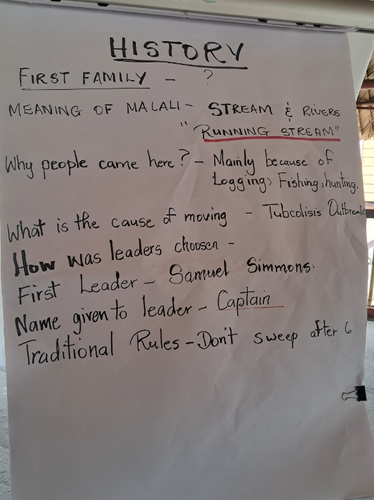 HISTORY
FIRST FAMILY - ?
MEANING OF MALALI - STREAM & RIVERS
"RUNNING STREAM"
Why people came here? - Mainly because of
Logging, Fishing, hunting.
What is the cause of moving - Tubcolisis Outbreak
How was leaders choosen -
First Leader - Samuel Simmons.
Name given to leader - Captain
Traditional Rules - Don't sweep after 6